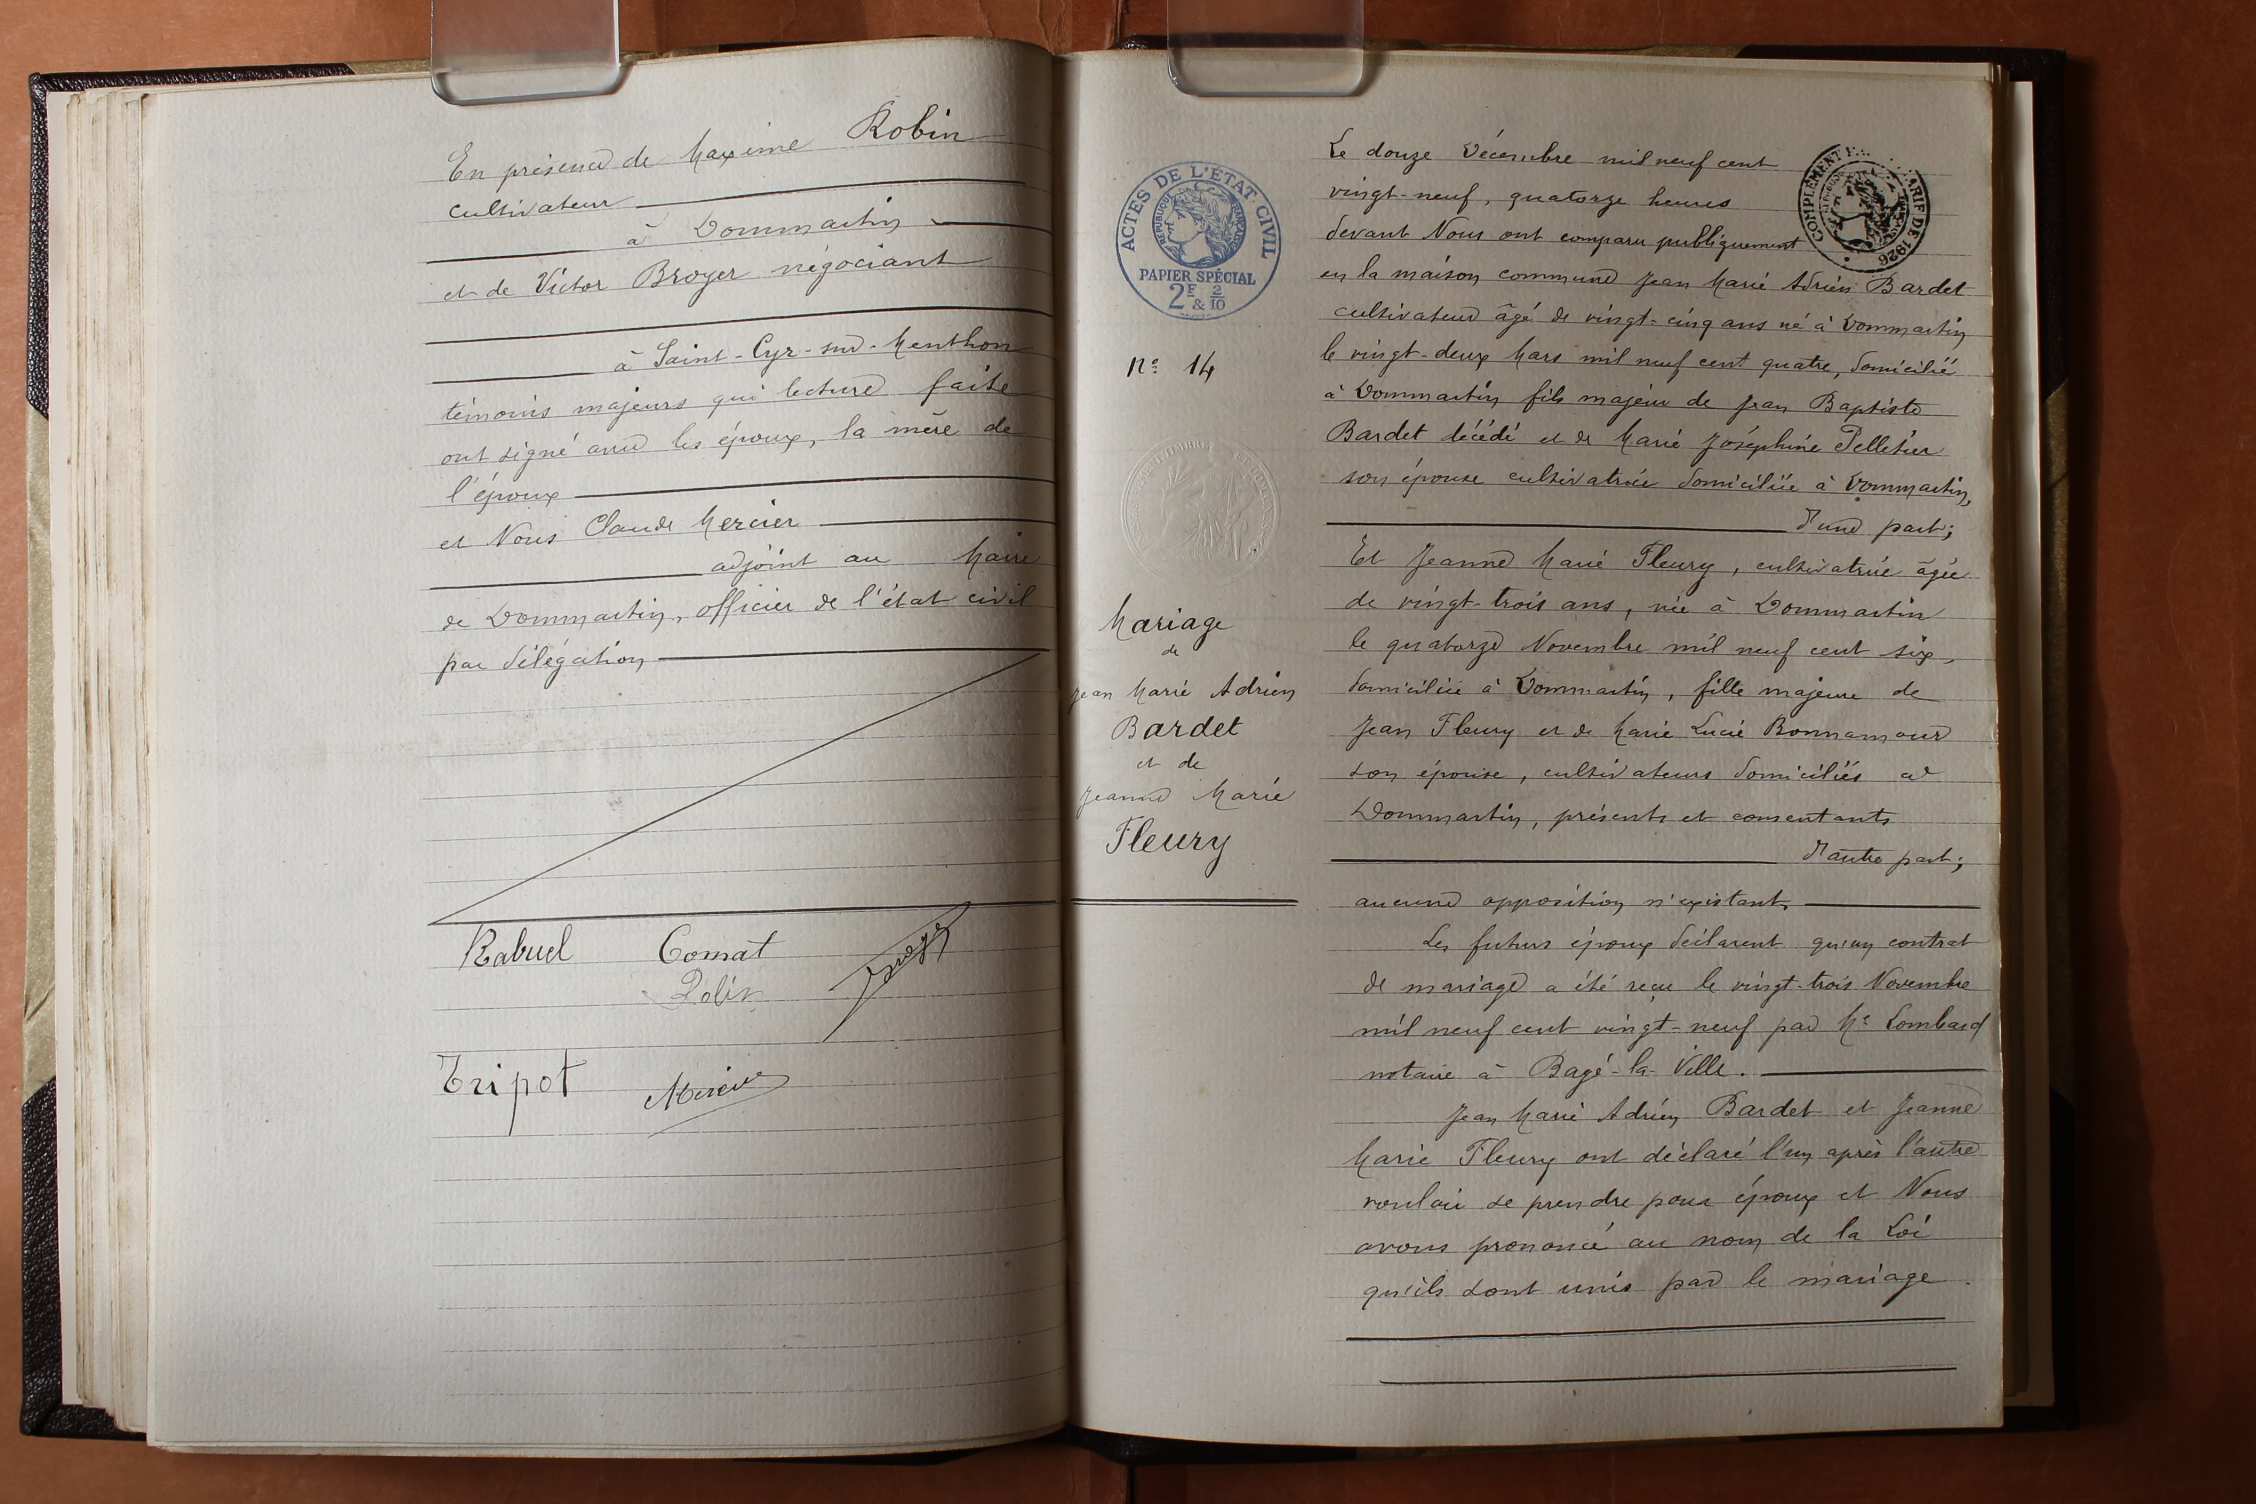 En présence de Maxime Robin
cultivateur
à Dommartin
et de Victor Broyer négociant
à Saint-Cyr-sur-Menthon
témoins majeurs qui lecture faite
ont signé avec les époux, la mère de
l'époux
et Nous Claude Mercier
adjoint au Maire
de Dommartin, officier de l'état civil
par délégation
Rabuel Comat
Robin
Tripot Mercier
ACTES DE L'ÉTAT CIVIL
RÉPUBLIQUE FRANÇAISE
PAPIER SPÉCIAL
2F & 2/10
No 14
Mariage
de
Jean Marie Adrien
Bardet
et de
Jeanne Marie
Fleury
COMPLÉMENT TARIF DE 1926
Le douze Décembre mil neuf cent
vingt-neuf, quatorze heures
devant Nous ont comparu publiquement
en la maison commune Jean Marie Adrien Bardet
cultivateur âgé de vingt-cinq ans né à Dommartin
le vingt-deux Mars mil neuf cent quatre, domicilié
à Dommartin fils majeur de Jean Baptiste
Bardet décédé et de Marie Joséphine Pelletier
son épouse cultivatrice domiciliée à Dommartin,
d'une part;
Et Jeanne Marie Fleury, cultivatrice âgée
de vingt-trois ans, née à Dommartin
le quatorze Novembre mil neuf cent six,
domiciliée à Dommartin, fille majeure de
Jean Fleury et de Marie Lucie Bonnamour
son épouse, cultivateurs domiciliés à
Dommartin, présents et consentants
d'autre part;
aucune opposition n'existant,
Les futurs époux déclarent qu'un contrat
de mariage a été reçu le vingt-trois Novembre
mil neuf cent vingt-neuf par Me Lombard
notaire à Bagé-la-Ville.
Jean Marie Adrien Bardet et Jeanne
Marie Fleury ont déclaré l'un après l'autre
vouloir se prendre pour époux et Nous
avons prononcé au nom de la Loi
qu'ils sont unis par le mariage.